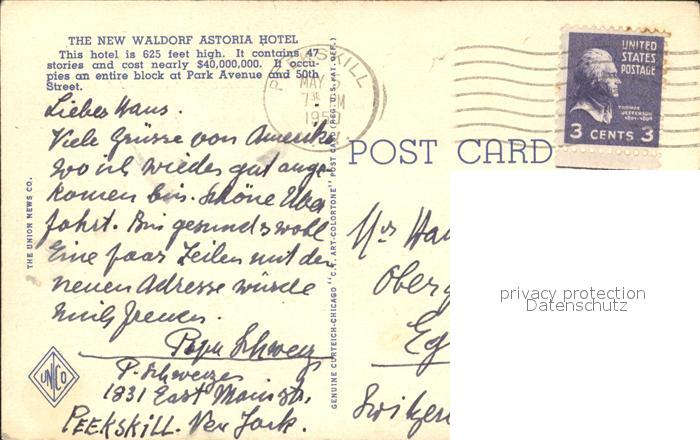 THE NEW WALDORF ASTORIA HOTEL
This hotel is 625 feet high. It contains 47
stories and cost nearly $40,000,000. It occu-
pies an entire block at Park Avenue and 50th
Street.
Lieber Hans.
Viele Grüsse von Amerika
wo ich wieder gut ange-
komen bin. Schöne Über
fahrt. Bin gesund & wohl
Eine paar Zeilen mit der
neuen Adresse würde
mich freuen.
Papa Schweiz
P. Schweizer
1831 East Main Str.
PEEKSKILL. New York.
THE UNION NEWS CO.
UNCO
GENUINE CURTEICH-CHICAGO "C.T. ART-COLORTONE" POST CARD (REG. U.S. PAT. OFF.)
PEEKSKILL
MAY
7 30 PM
1950
N.Y.
UNITED
STATES
POSTAGE
THOMAS
JEFFERSON
1801-1809
3 CENTS 3
POST CARD
Mrs Hau
Oberg
Eg
Switzer
privacy protection
Datenschutz